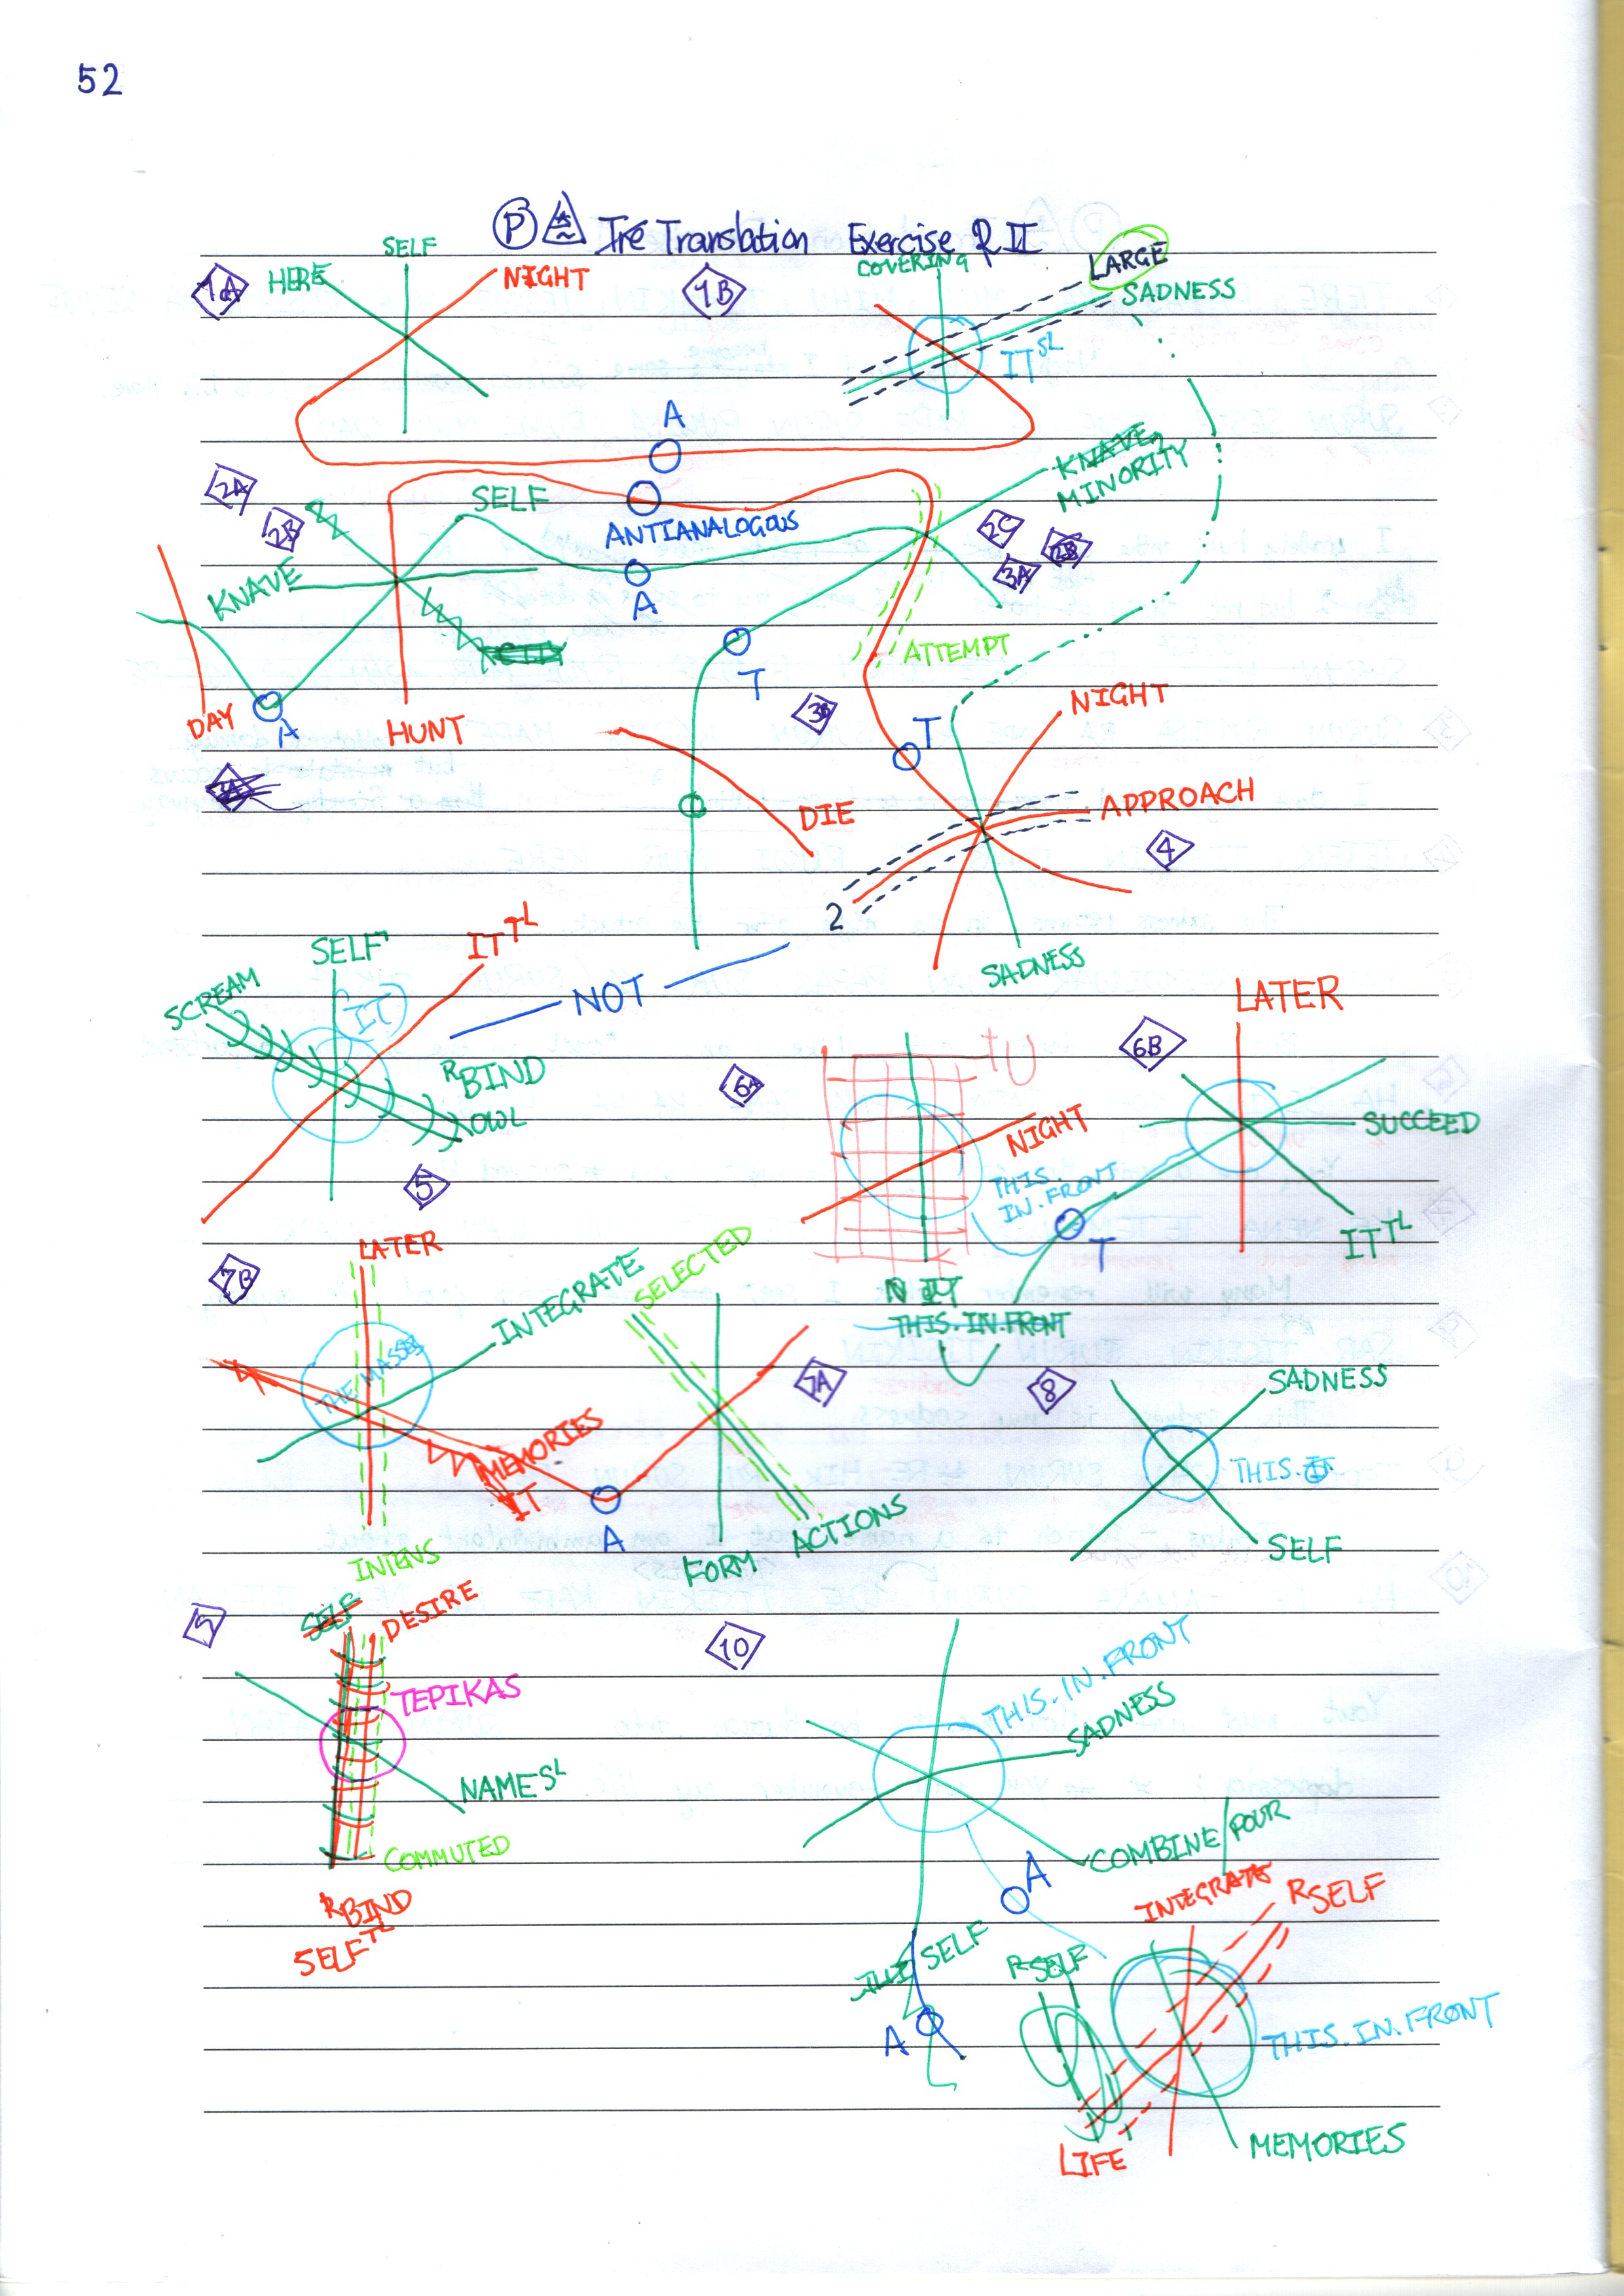 52
P Tre Translation Exercise R II
1A HERE SELF NIGHT 1B COVERING LARGE
SADNESS
IT SL
A
2A 2B SELF ANTIANALOGOUS KNAVE
MINORITY
2C 2B
3A
KNAVE A
ATTEMPT
T
DAY A HUNT 3B T NIGHT
3A
DIE APPROACH
4
2
SELF IT TL SADNESS
SCREAM IT NOT
RBIND
OWL
5
6A U+ NIGHT
THIS.
IN.FRONT
N IT
THIS.IN.FRONT
6B LATER
SUCCEED
T IT TL
7B LATER INTEGRATE SELECTED
THE MASSES
MEMORIES
IT
A
INTENS FORM ACTIONS
7A
8 SADNESS
THIS.IT
SELF
9 SELF DESIRE
TEPIKAS
NAMES L
COMMUTED
RBIND
SELF TL
10 THIS.IN.FRONT
SADNESS
COMBINE/POUR
A
SELF
A
RSELF INTEGRATE RSELF
THIS.IN.FRONT
LIFE MEMORIES